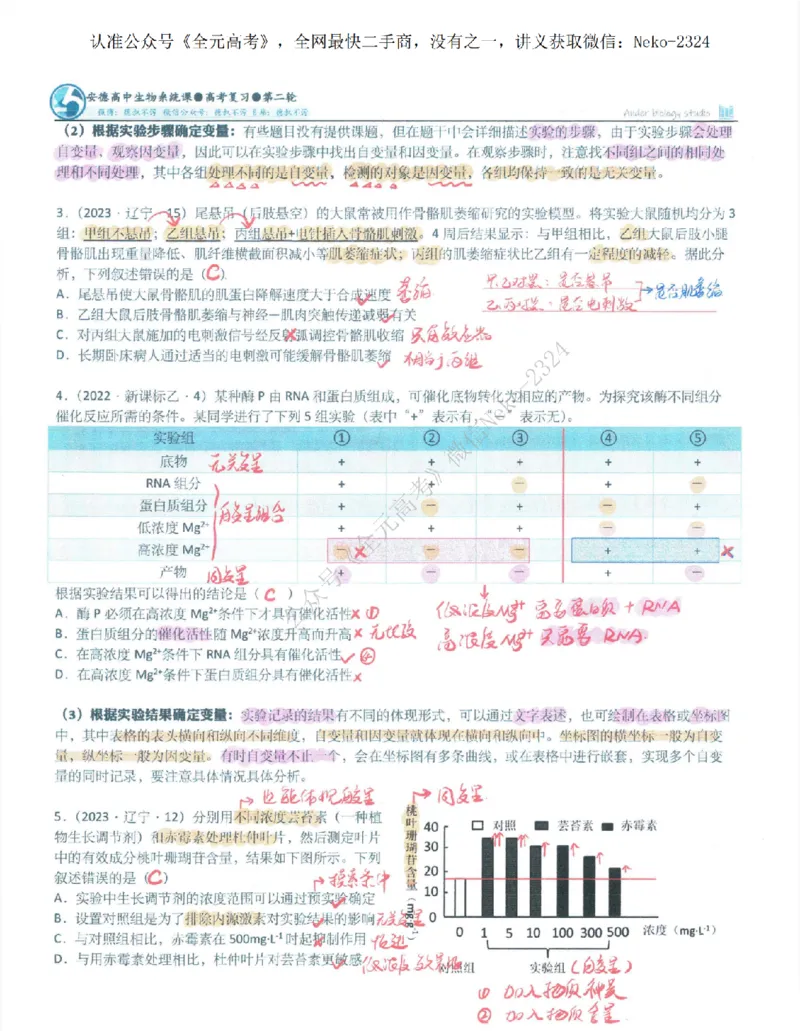 认准公众号《全元高考》，全网最快二手商，没有之一，讲义获取微信：Neko-2324
安德高中生物系统课●高考复习●第二轮
Andor biology studio
（2）根据实验步骤确定变量：有些题目没有提供课题，但在题干中会详细描述实验的步骤，由于实验步骤会处理
自变量、观察因变量，因此可以在实验步骤中找出自变量和因变量。在观察步骤时，注意找不同组之间的相同处
理和不同处理，其中各组处理不同的是自变量，检测的对象是因变量，各组均保持一致的是无关变量。
3．（2023·辽宁·15）尾悬吊（后肢悬空）的大鼠常被用作骨骼肌萎缩研究的实验模型。将实验大鼠随机均分为 3
组：甲组不悬吊；乙组悬吊；丙组悬吊+电针插入骨骼肌刺激。4 周后结果显示：与甲组相比，乙组大鼠后肢小腿
骨骼肌出现重量降低、肌纤维横截面积减小等肌萎缩症状；丙组的肌萎缩症状比乙组有一定程度的减轻。据此分
析，下列叙述错误的是（C）
甲乙对照：是否悬吊
A．尾悬吊使大鼠骨骼肌的肌蛋白降解速度大于合成速度 萎缩
乙丙对照：是否电刺激 → 是否肌萎缩
B．乙组大鼠后肢骨骼肌萎缩与神经—肌肉突触传递减弱有关
C．对丙组大鼠施加的电刺激信号经反射弧调控骨骼肌收缩
D．长期卧床病人通过适当的电刺激可能缓解骨骼肌萎缩 相当于丙组
4．（2022·新课标乙·4）某种酶 P 由 RNA 和蛋白质组成，可催化底物转化为相应的产物。为探究该酶不同组分
催化反应所需的条件。某同学进行了下列 5 组实验（表中“+”表示有，“—”表示无）。
实验组 ① ② ③ ④ ⑤
底物 无关变量 + + + + +
RNA 组分 + + — + —
蛋白质组分 自变量组合 + — + — +
低浓度 Mg²⁺ + + + — —
高浓度 Mg²⁺ — × — — + + ×
产物 因变量 + — — + —
根据实验结果可以得出的结论是（C）
A．酶 P 必须在高浓度 Mg²⁺条件下才具有催化活性× ①
低浓度Mg²⁺ 需要蛋白质 + RNA
B．蛋白质组分的催化活性随 Mg²⁺浓度升高而升高×
高浓度Mg²⁺ 只需要 RNA
C．在高浓度 Mg²⁺条件下 RNA 组分具有催化活性✓ ④
D．在高浓度 Mg²⁺条件下蛋白质组分具有催化活性×
（3）根据实验结果确定变量：实验记录的结果有不同的体现形式，可以通过文字表述，也可绘制在表格或坐标图
中，其中表格的表头横向和纵向不同维度，自变量和因变量就体现在横向和纵向中。坐标图的横坐标一般为自变
量，纵坐标一般为因变量。有时自变量不止一个，会在坐标图有多条曲线，或在表格中进行嵌套，实现多个自变
量的同时记录，要注意具体情况具体分析。
也能体现自变量
因变量
5．（2023·辽宁·12）分别用不同浓度芸苔素（一种植
物生长调节剂）和赤霉素处理杜仲叶片，然后测定叶片
中的有效成分桃叶珊瑚苷含量，结果如下图所示。下列
叙述错误的是（C）
探索条件
A．实验中生长调节剂的浓度范围可以通过预实验确定
B．设置对照组是为了排除内源激素对实验结果的影响 无关变量
C．与对照组相比，赤霉素在 500mg·L⁻¹时起抑制作用 促进
D．与用赤霉素处理相比，杜仲叶片对芸苔素更敏感
桃叶珊瑚苷含量（mg·g⁻¹）
对照 芸苔素 赤霉素
40
30
20
10
0
0 1 5 10 100 300 500 浓度（mg·L⁻¹）
对照组 实验组（自变量）
① 加入物质种类
② 加入物质含量
《全元高考》微信Neko-2324